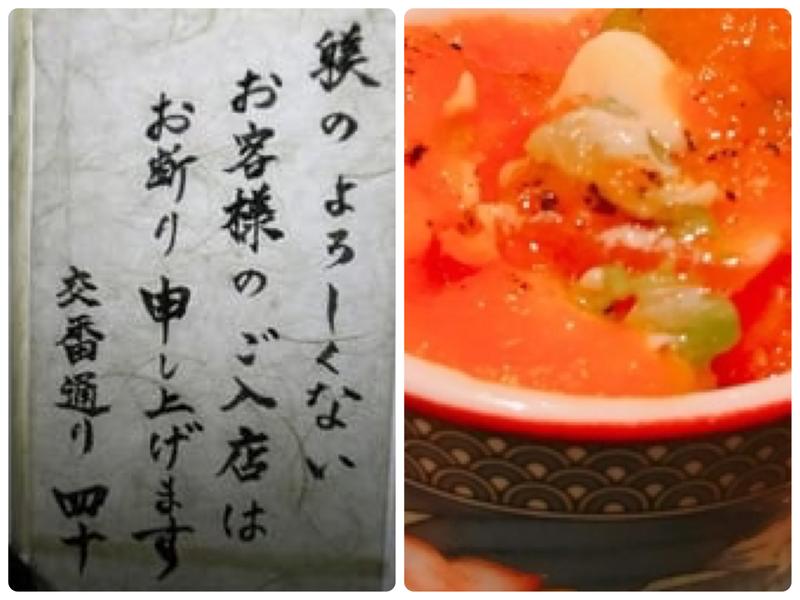 躾のよろしくない
お客様のご入店は
お断り申し上げます
交番通り 四十